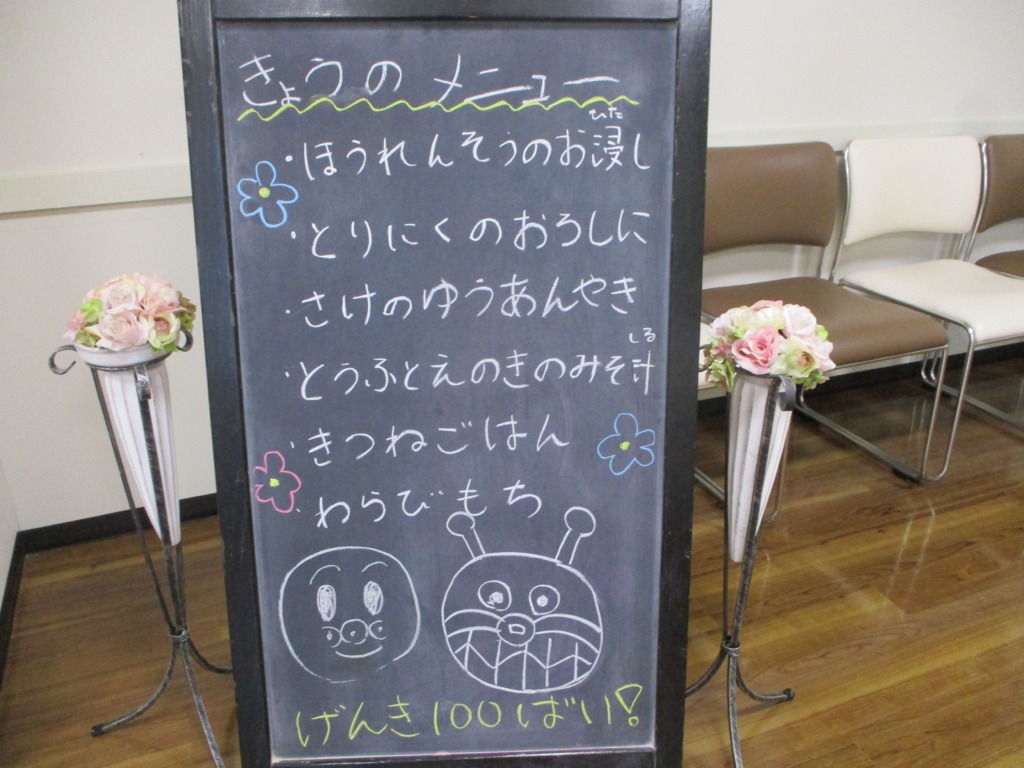 きょうのメニュー
ひた
・ほうれんそうのお浸し
・とりにくのおろしに
・さけのゆうあんやき
しる
・とうふとえのきのみそ汁
・きつねごはん
・わらびもち
げんき100ばい!